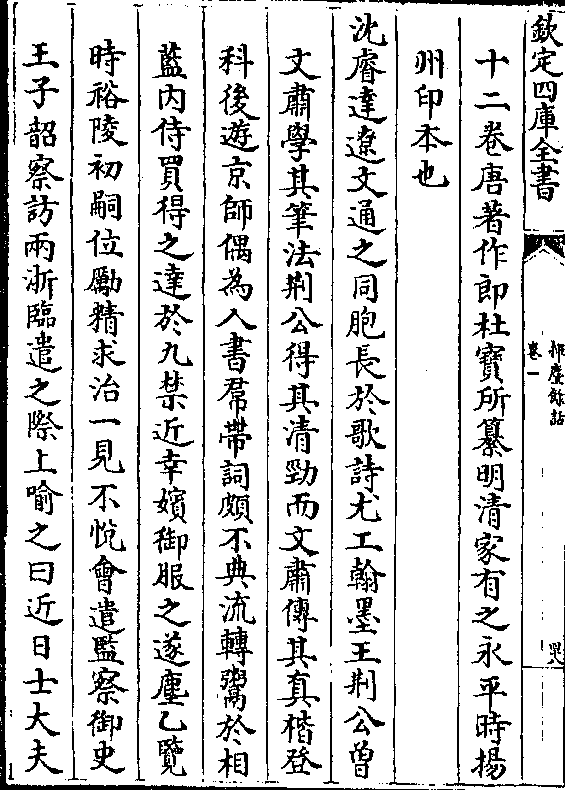 欽定四庫全書
揮麈餘話
卷一
十二卷唐著作郎杜寶所纂明清家有之永平時揚
州印本也
沈睿達遼文通之同胞長於歌詩尤工翰墨王荆公曾
文肅學其筆法荆公得其清勁而文肅傳其真楷登
科後遊京師偶為人書帬帶詞頗不典流轉鬻於相
藍内侍買得之達於九禁近幸嬪御服之遂塵乙覽
時裕陵初嗣位勵精求治一見不悦會遣監察御史
王子韶察訪兩浙臨遣之際上喻之曰近日士大夫